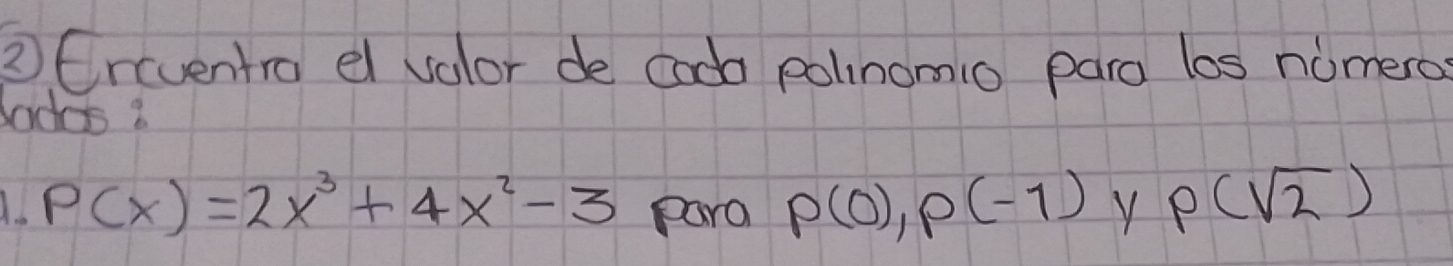 ② Encuentra el valor de cada polinomio para los números
dados:
1. P(x) = 2x³ + 4x² - 3 para p(0), p(-1) y p(√2)